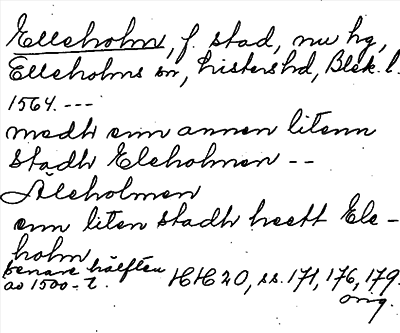 Elleholm, f. stad, nu hg,
Elleholms sn, Listers hd, Blek. l.
1564. ---
medh enn annen litenn
stadh Eleholmen --
Äleholmen
enn liten stadh heett Ele-
holm
senare hälften
av 1500-t. HH 20, ss. 171, 176, 179.
orig.